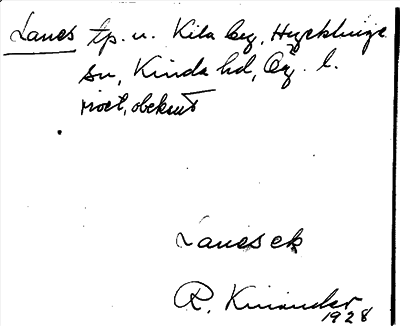 Lanes tp. u. Kila by, Hycklinge
sn, Kinda hd, Ög. l.
riset, obekant
Lanesek
R. Kinander
1928